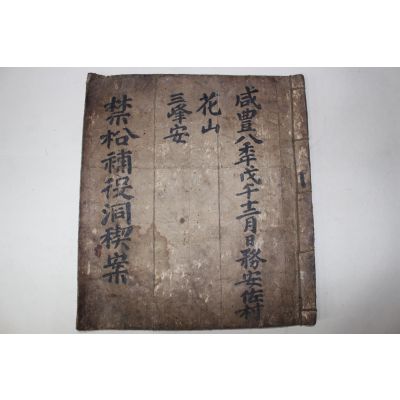 咸豊八年戊午十二月日務安佐村
花山
三峰安
禁松補役洞稧案